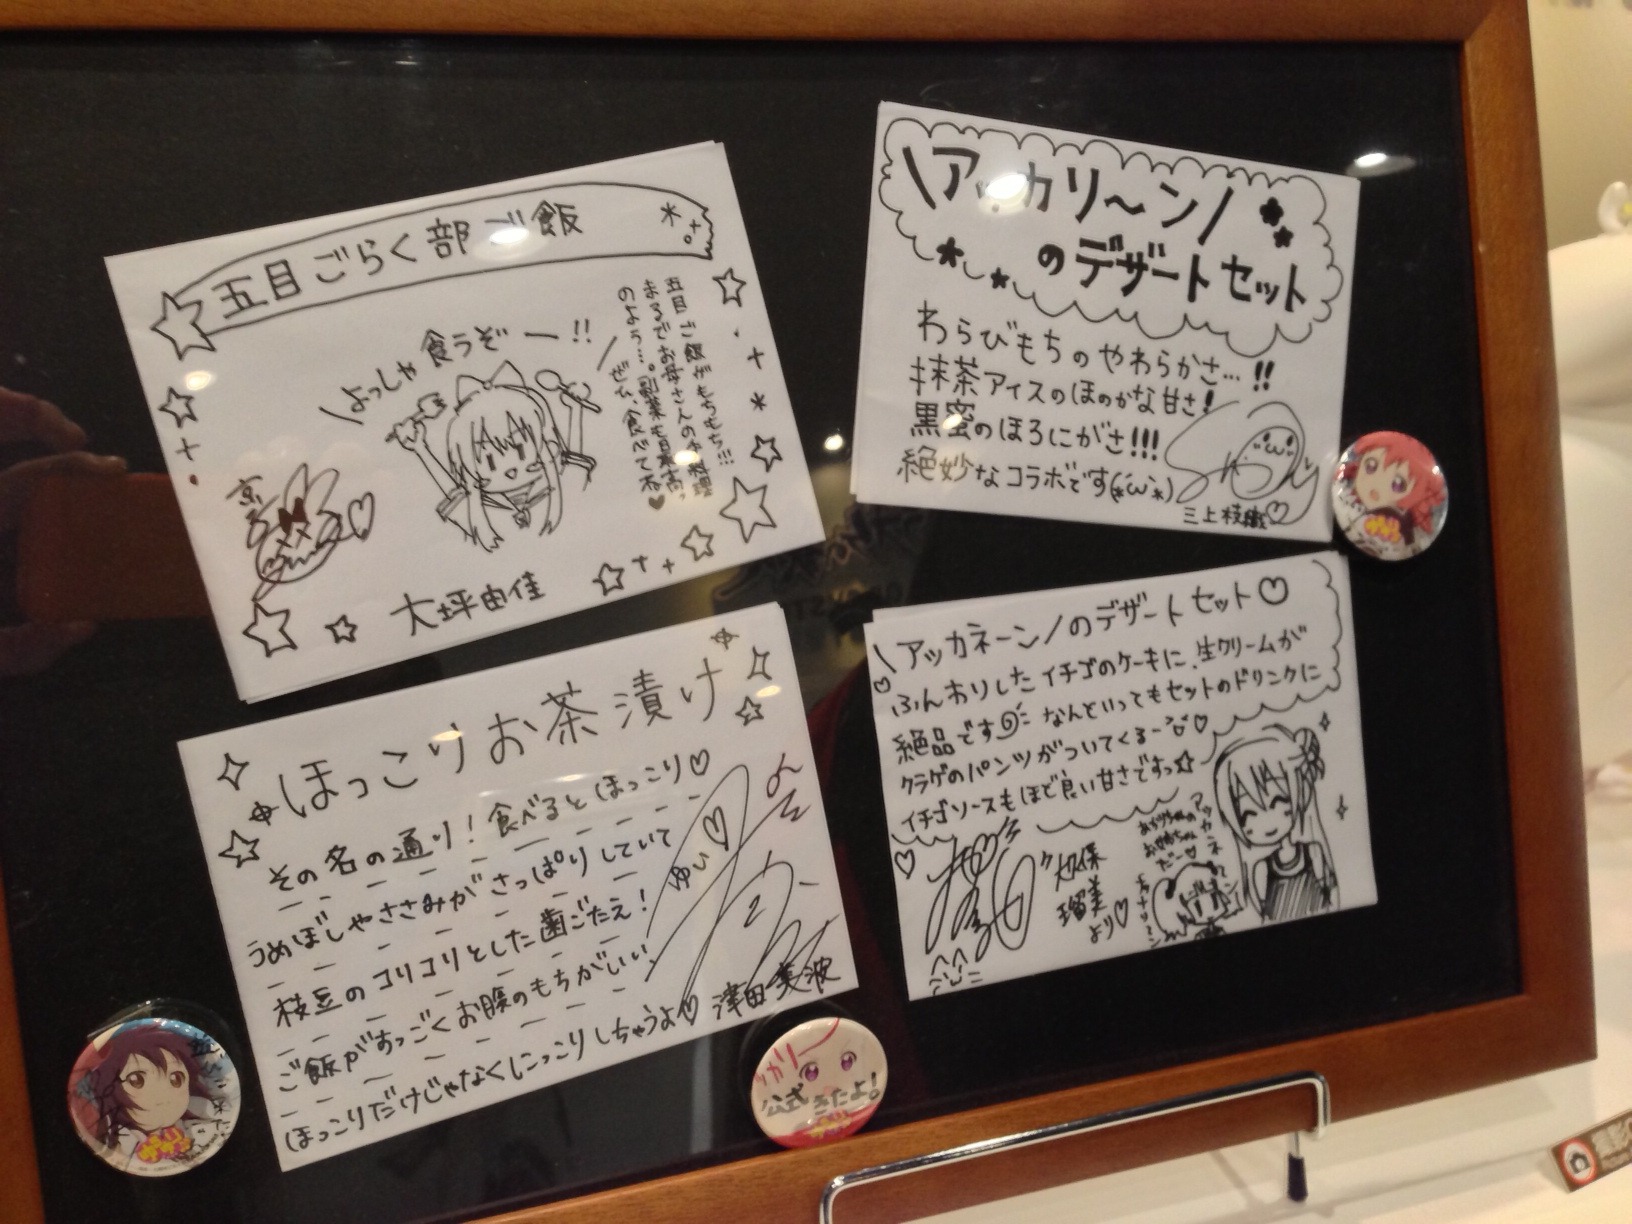 五目ごらく部ご飯
よっしゃ食うぞー!!
五目ご飯がもちもち!!!
まるでお母さんのお料理
のよう…。副菜も最高っ
ぜひ、食べて下
京
大坪由佳
\アッカリ～ン/
のデザートセット
わらびもちのやわらかさ…!!
抹茶アイスのほのかな甘さ!
黒蜜のほろにがさ!!!
絶妙なコラボです(*´ω`*)
三上枝織♡
ほっこりお茶漬け
その名の通り！食べるとほっこり♡
うめぼしやささみがさっぱりしていて
枝豆のコリコリとした歯ごたえ！
ご飯がすっごくお腹のもちがいい、
ほっこりだけじゃなくにっこりしちゃうよ♡
ゆい
津田美波
\アッカネーン/のデザートセット♡
ふんわりしたイチゴのケーキに、生クリームが
絶品です なんといってもセットのドリンクに
クラゲのパンツがついてくるー♡
イチゴソースもほど良い甘さですっ☆
久保
瑠美
より♡
アッカネ
お姉ちゃん
だー♡
チナツ
公式きたよ!